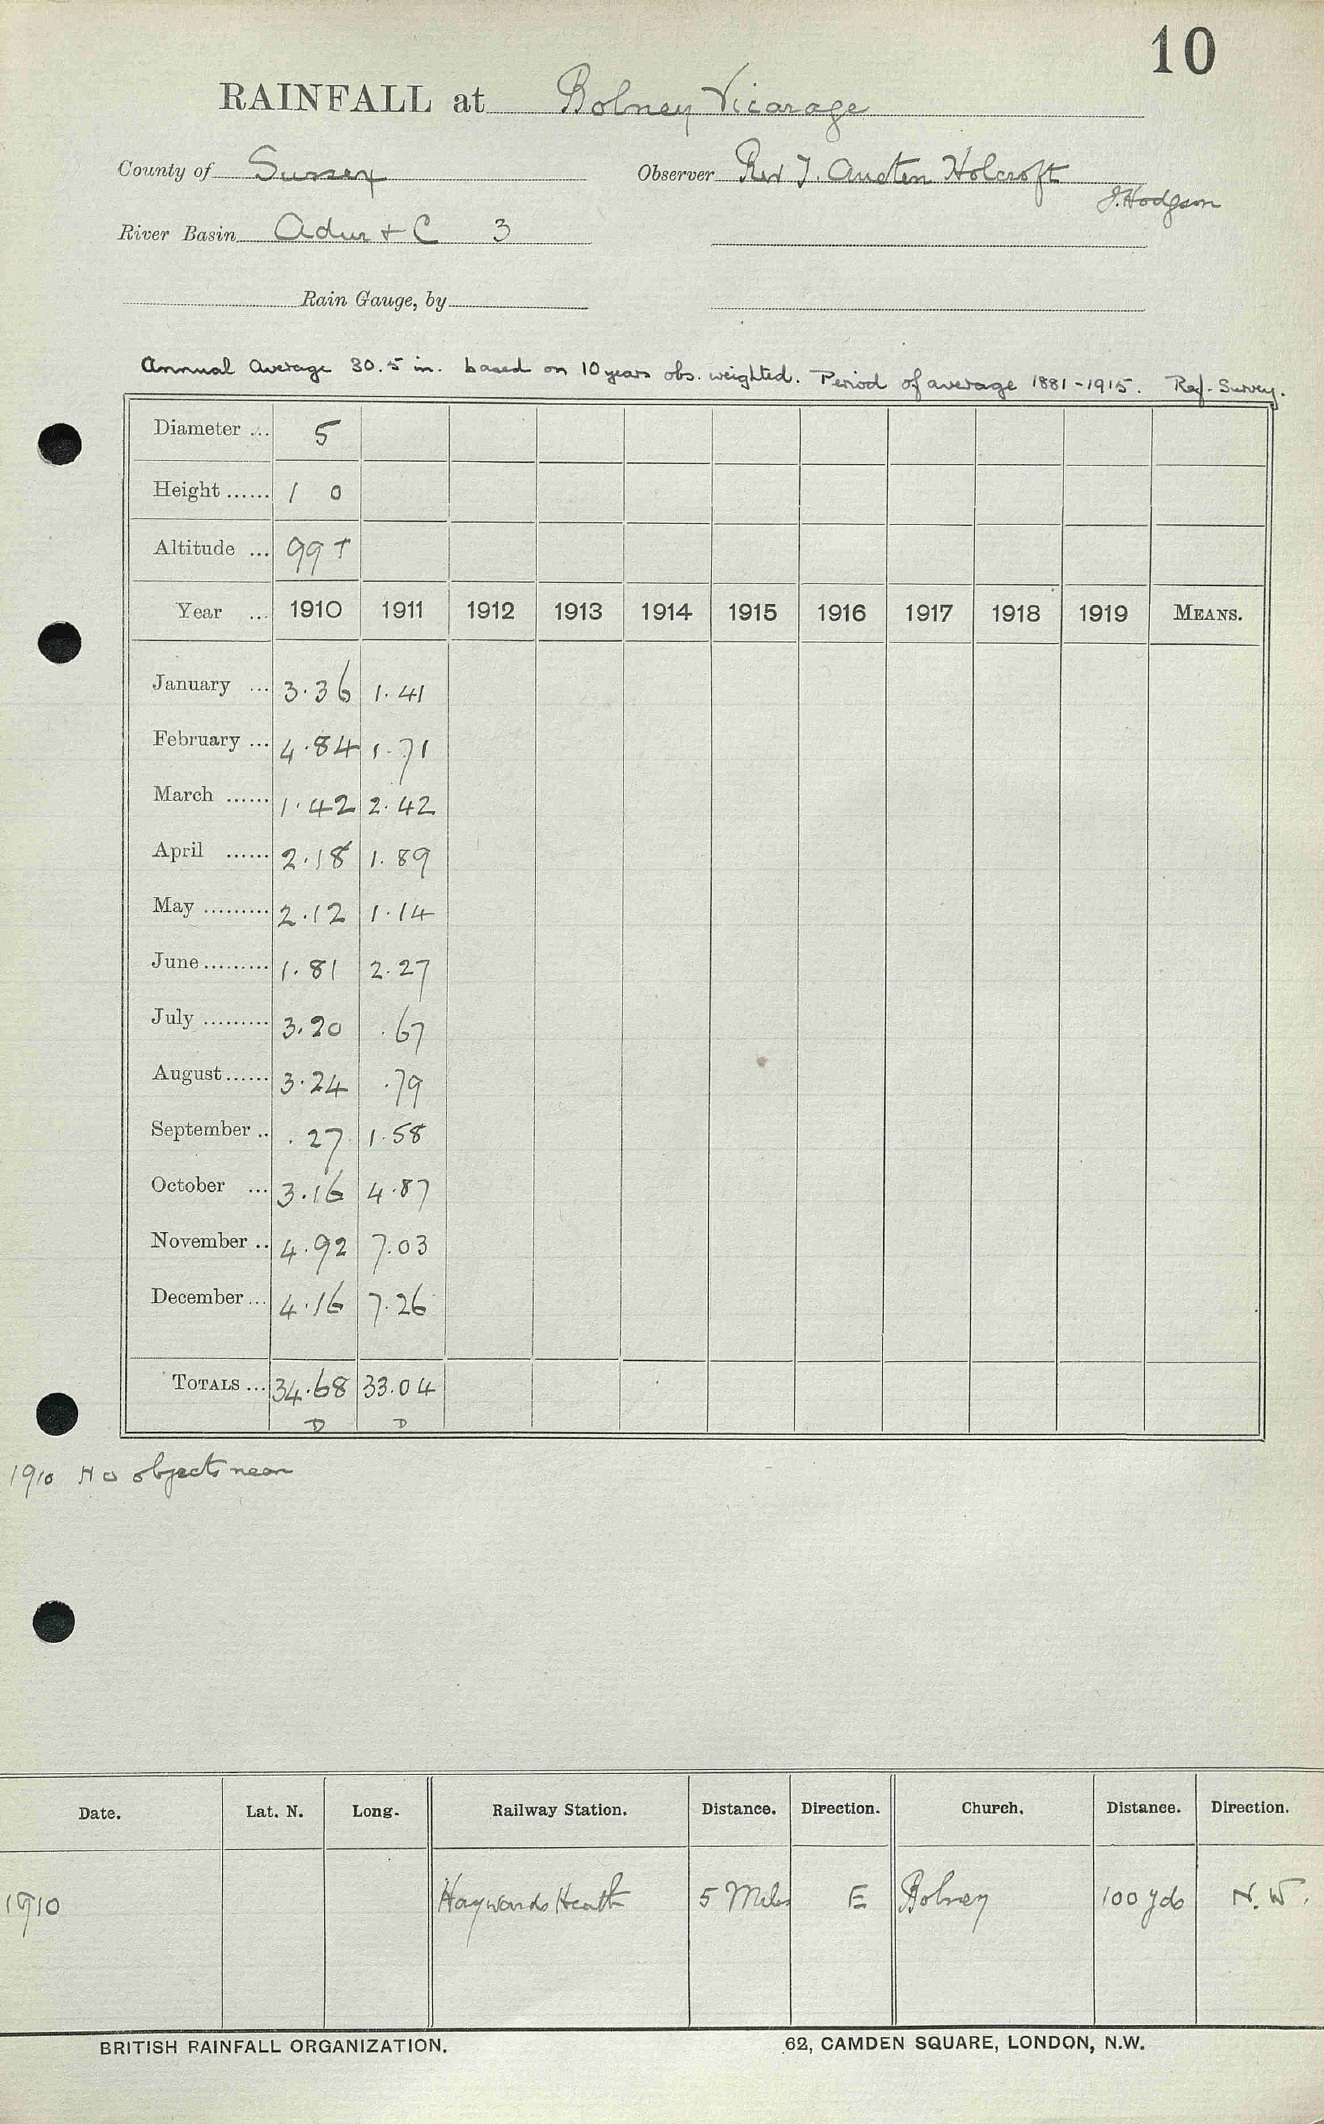 10
RAINFALL at Bolney Vicarage
County of Sussex Observer Rev J. Austen Holcroft
J. Hodgson
River Basin Adur + C 3
Rain Gauge, by
Annual average 30.5 in. based on 10 years obs. weighted. Period of average 1881-1915. Ref. Survey.
Diameter ... 5
Height ...... 1 0
Altitude ... 99 T
Year ... 1910 1911 1912 1913 1914 1915 1916 1917 1918 1919 MEANS.
January ... 3.36 1.41
February ... 4.84 1.71
March ...... 1.42 2.42
April ...... 2.18 1.89
May ......... 2.12 1.14
June ......... 1.81 2.27
July ......... 3.20 .67
August ...... 3.24 .79
September .. .27 1.58
October ... 3.16 4.87
November .. 4.92 7.03
December ... 4.16 7.26
TOTALS ... 34.68 33.04
D D
1910 No objects near
Date. Lat. N. Long. Railway Station. Distance. Direction. Church. Distance. Direction.
1910 Haywards Heath 5 Miles E Bolney 100 yds N.W.
BRITISH RAINFALL ORGANIZATION. 62, CAMDEN SQUARE, LONDON, N.W.